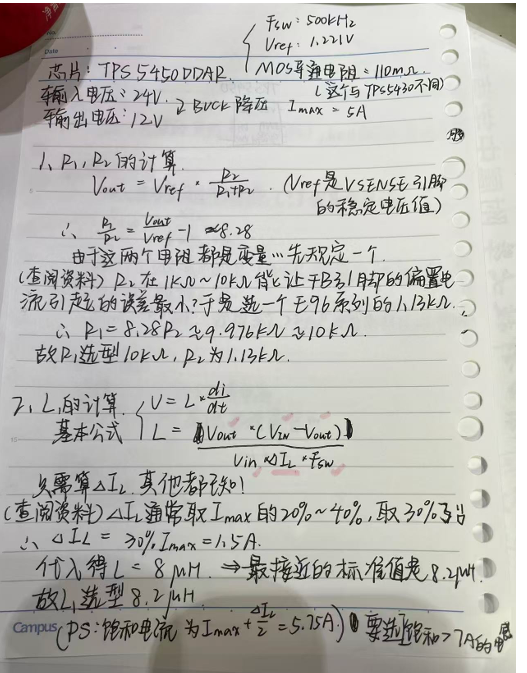 Fsw: 500kHz
Vref: 1.221V
芯片: TPS5450DDAR. MOS导通电阻: 110mΩ.
(这个与TPS5430不同)
输入电压: 24V. 2 BUCK降压 Imax = 5A
输出电压: 12V
1、R1, R2的计算.
Vout = Vref * R2/(R1+R2). (Vref是VSENSE引脚
的稳定电压值)
∴ R1/R2 = Vout/Vref - 1 ≈8.28
由于这两个电阻都是变量∴先规定一个.
(查阅资料) R2在1KΩ~10KΩ能让FB引脚的偏置电
流引起的误差最小?于是选一个E96系列的1.13KΩ.
∴ R1=8.28R2≈9.976KΩ≈10KΩ.
故R1选型10KΩ, R2为1.13KΩ.
2、L1的计算.
基本公式
U = L * di/dt
L = Vout *(VIN-Vout) / Vin * ΔIL * Fsw
只需算ΔIL. 其他都已知!
(查阅资料) ΔIL通常取Imax的20%~40%, 取30%
∴ ΔIL = 30% Imax = 1.5A.
代入得L = 8μH. ⇒最接近的标准值是8.2μH.
故L1选型8.2μH
Campus (PS:饱和电流为Imax+ΔIL/2=5.75A.) 要选饱和>7A的电感